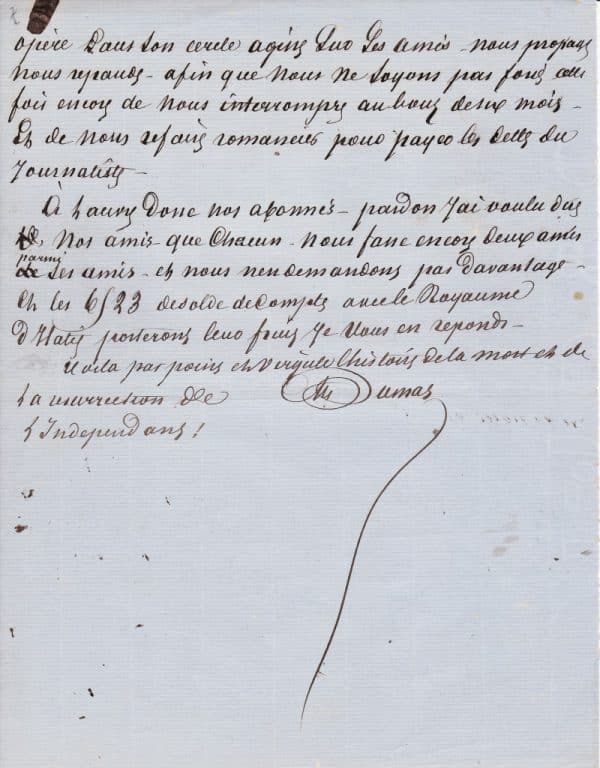 opère dans son cercle agisse sur ses amis - nous propage
nous repande - afin que nous ne soyons pas forcé une
fois encore de nous interrompre au bout de deux mois -
Et de nous refaire romancier pour payer les dettes du
Journaliste -
À l'œuvre Donc nos abonnés - pardon J'ai voulu dire
Nos amis - que Chacun nous fasse encore deux amis
parmi ses amis - et nous n'en demandons pas davantage -
Et les 6/23 de solde de compte avec le Royaume
d'Italie porteront leur fruit Je vous en reponds -
Voila par points et virgule l'histoire de la mort et de
La resurrection de
L'Independant!
Dumas